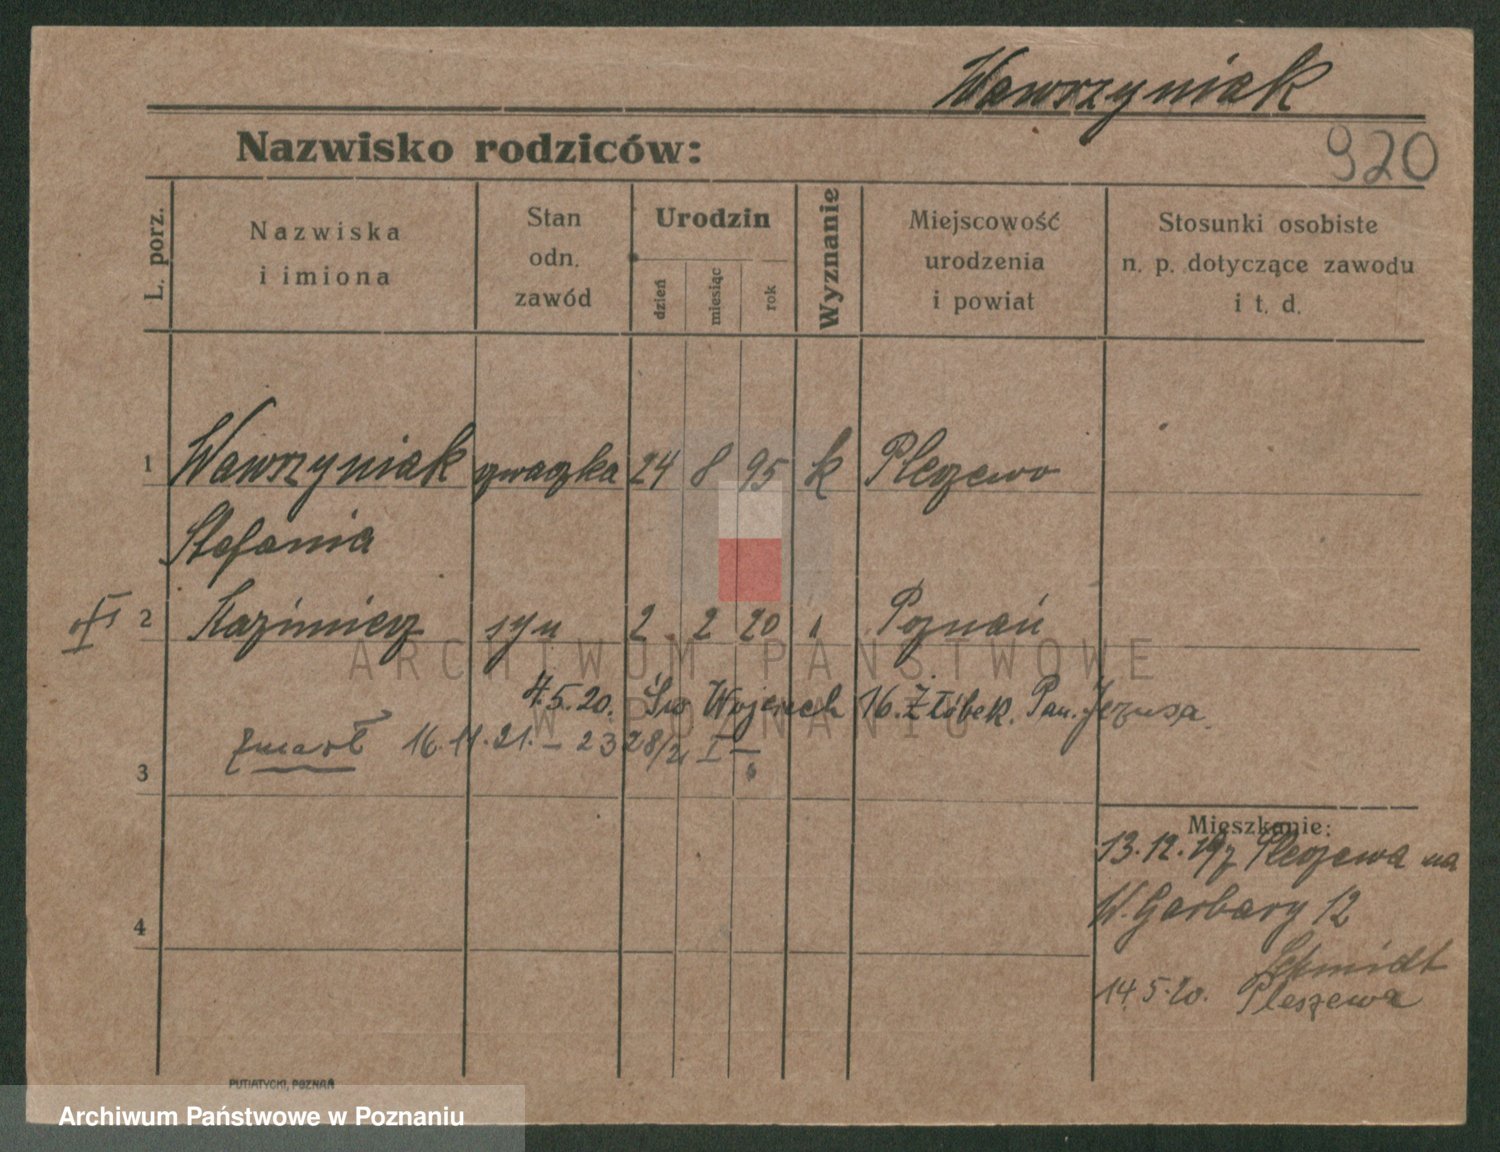 Wawrzyniak
Nazwisko rodziców:
920
L. porz.
Nazwiska
i imiona
Stan
odn.
zawód
Urodzin
dzień
miesiąc
rok
Wyznanie
Miejscowość
urodzenia
i powiat
Stosunki osobiste
n. p. dotyczące zawodu
i t. d.
1 Wawrzyniak szwaczka 24 8 95 k Pleszewo
Stefania
2 Kazimierz syn 2 2 20 " Poznań
4.5.20. Św Wojciech 16. Żłóbek. Pan. Jezusa.
zmarł 16.11.21. – 2328/21 I –
3
Mieszkanie:
13.12.19 z Pleszewa na
W. Garbary 12
4
Schmidt
14.5.20. Pleszewa
PUTIATYCKI, POZNAŃ
ARCHIWUM PAŃSTWOWE
W POZNANIU
Archiwum Państwowe w Poznaniu